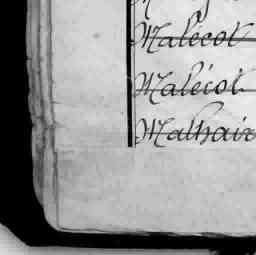 Malécot
Malécot
Malhair